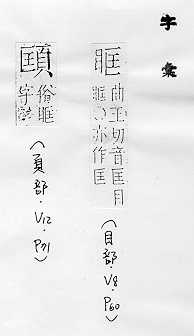 字彙
眶
曲王切音匡目
眶○亦作匡
(目部．V8．P60)
俗眶
字
(頁部．V12．P71)